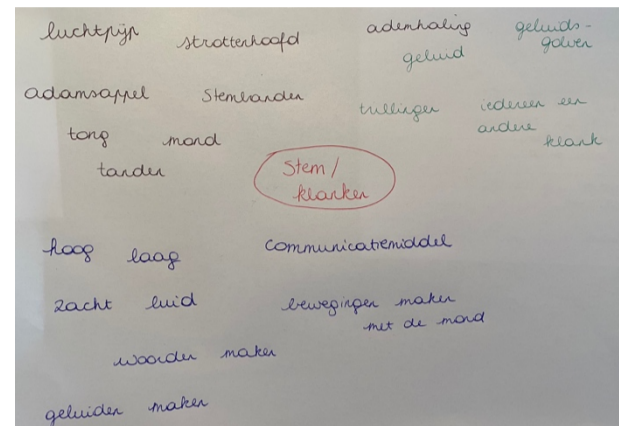 luchtpijp strottenhoofd ademhaling geluids-
geluid golven
adamsappel stembanden trillingen iedereen een
tong mond andere
tanden klank
Stem/
klanken
hoog laag communicatiemiddel
zacht luid bewegingen maken
met de mond
woorden maken
geluiden maken